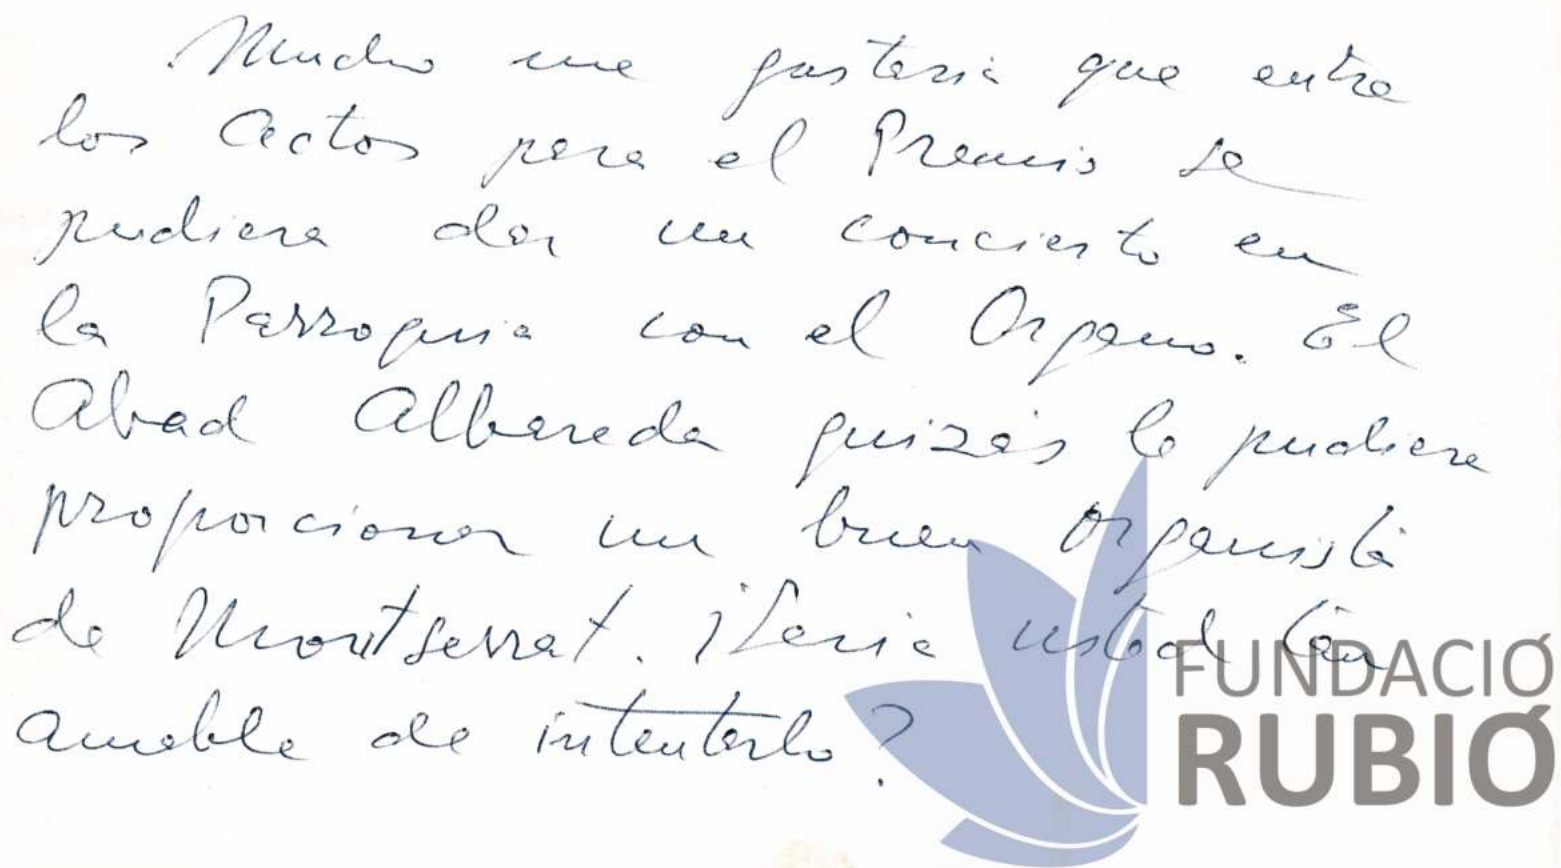 Mucho me gustaria que entre
los Actos para el Premio se
pudiera dar un concierto en
la Parroquia con el Organo. El
Abad Albareda quizás le pudiera
proporcionar un buen organista
de Montserrat. ¿Seria usted tan
amable de intentarlo?
FUNDACIÓ
RUBIÓ